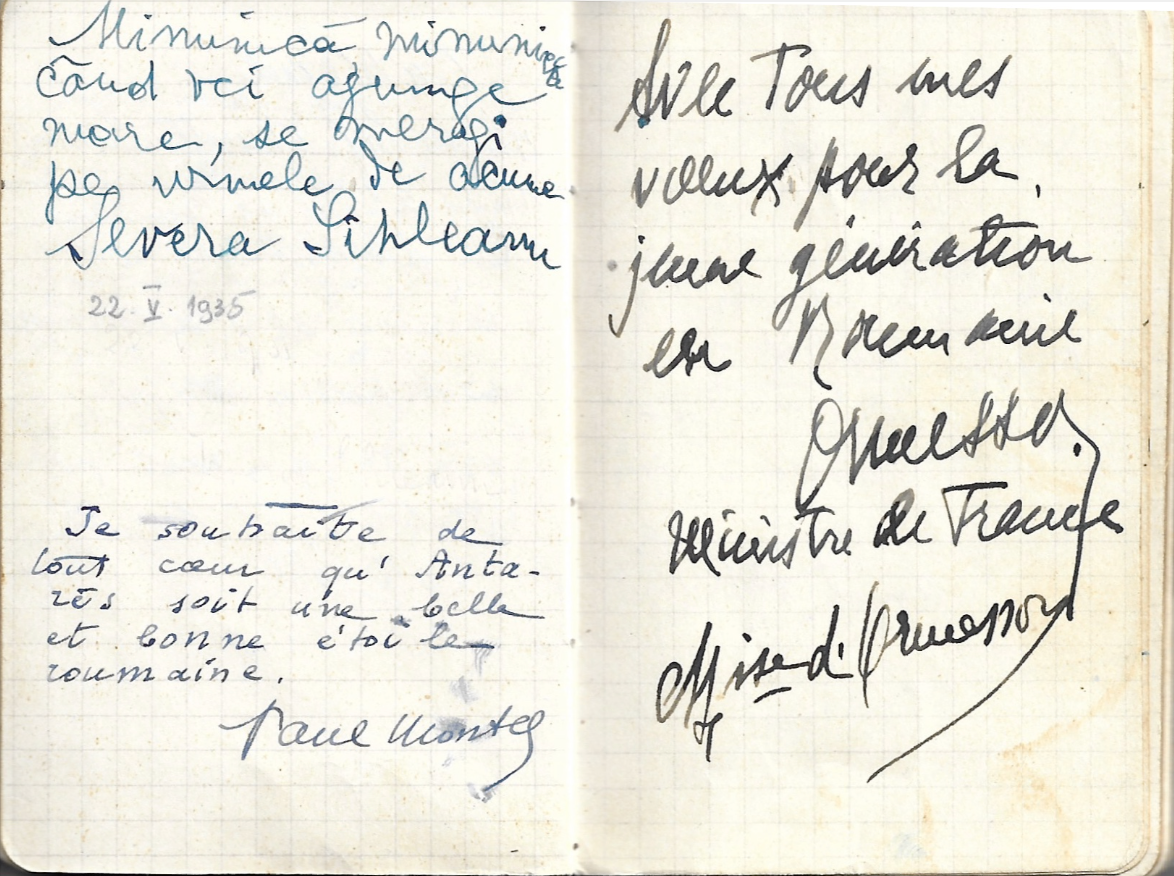 Minunică minunică
când vei ajunge
mare, se mergi
pe urmele de
Severa Sihleanu
22.V.1935
Je souhaite de
tout cœur qu'Anta-
rès soit une belle
et bonne étoile
roumaine.
Paul Montel
Avec Tous mes
vœux pour la
jeune génération
en Roumanie
Ormesson
Ministre de France
Mise d'Ormesson